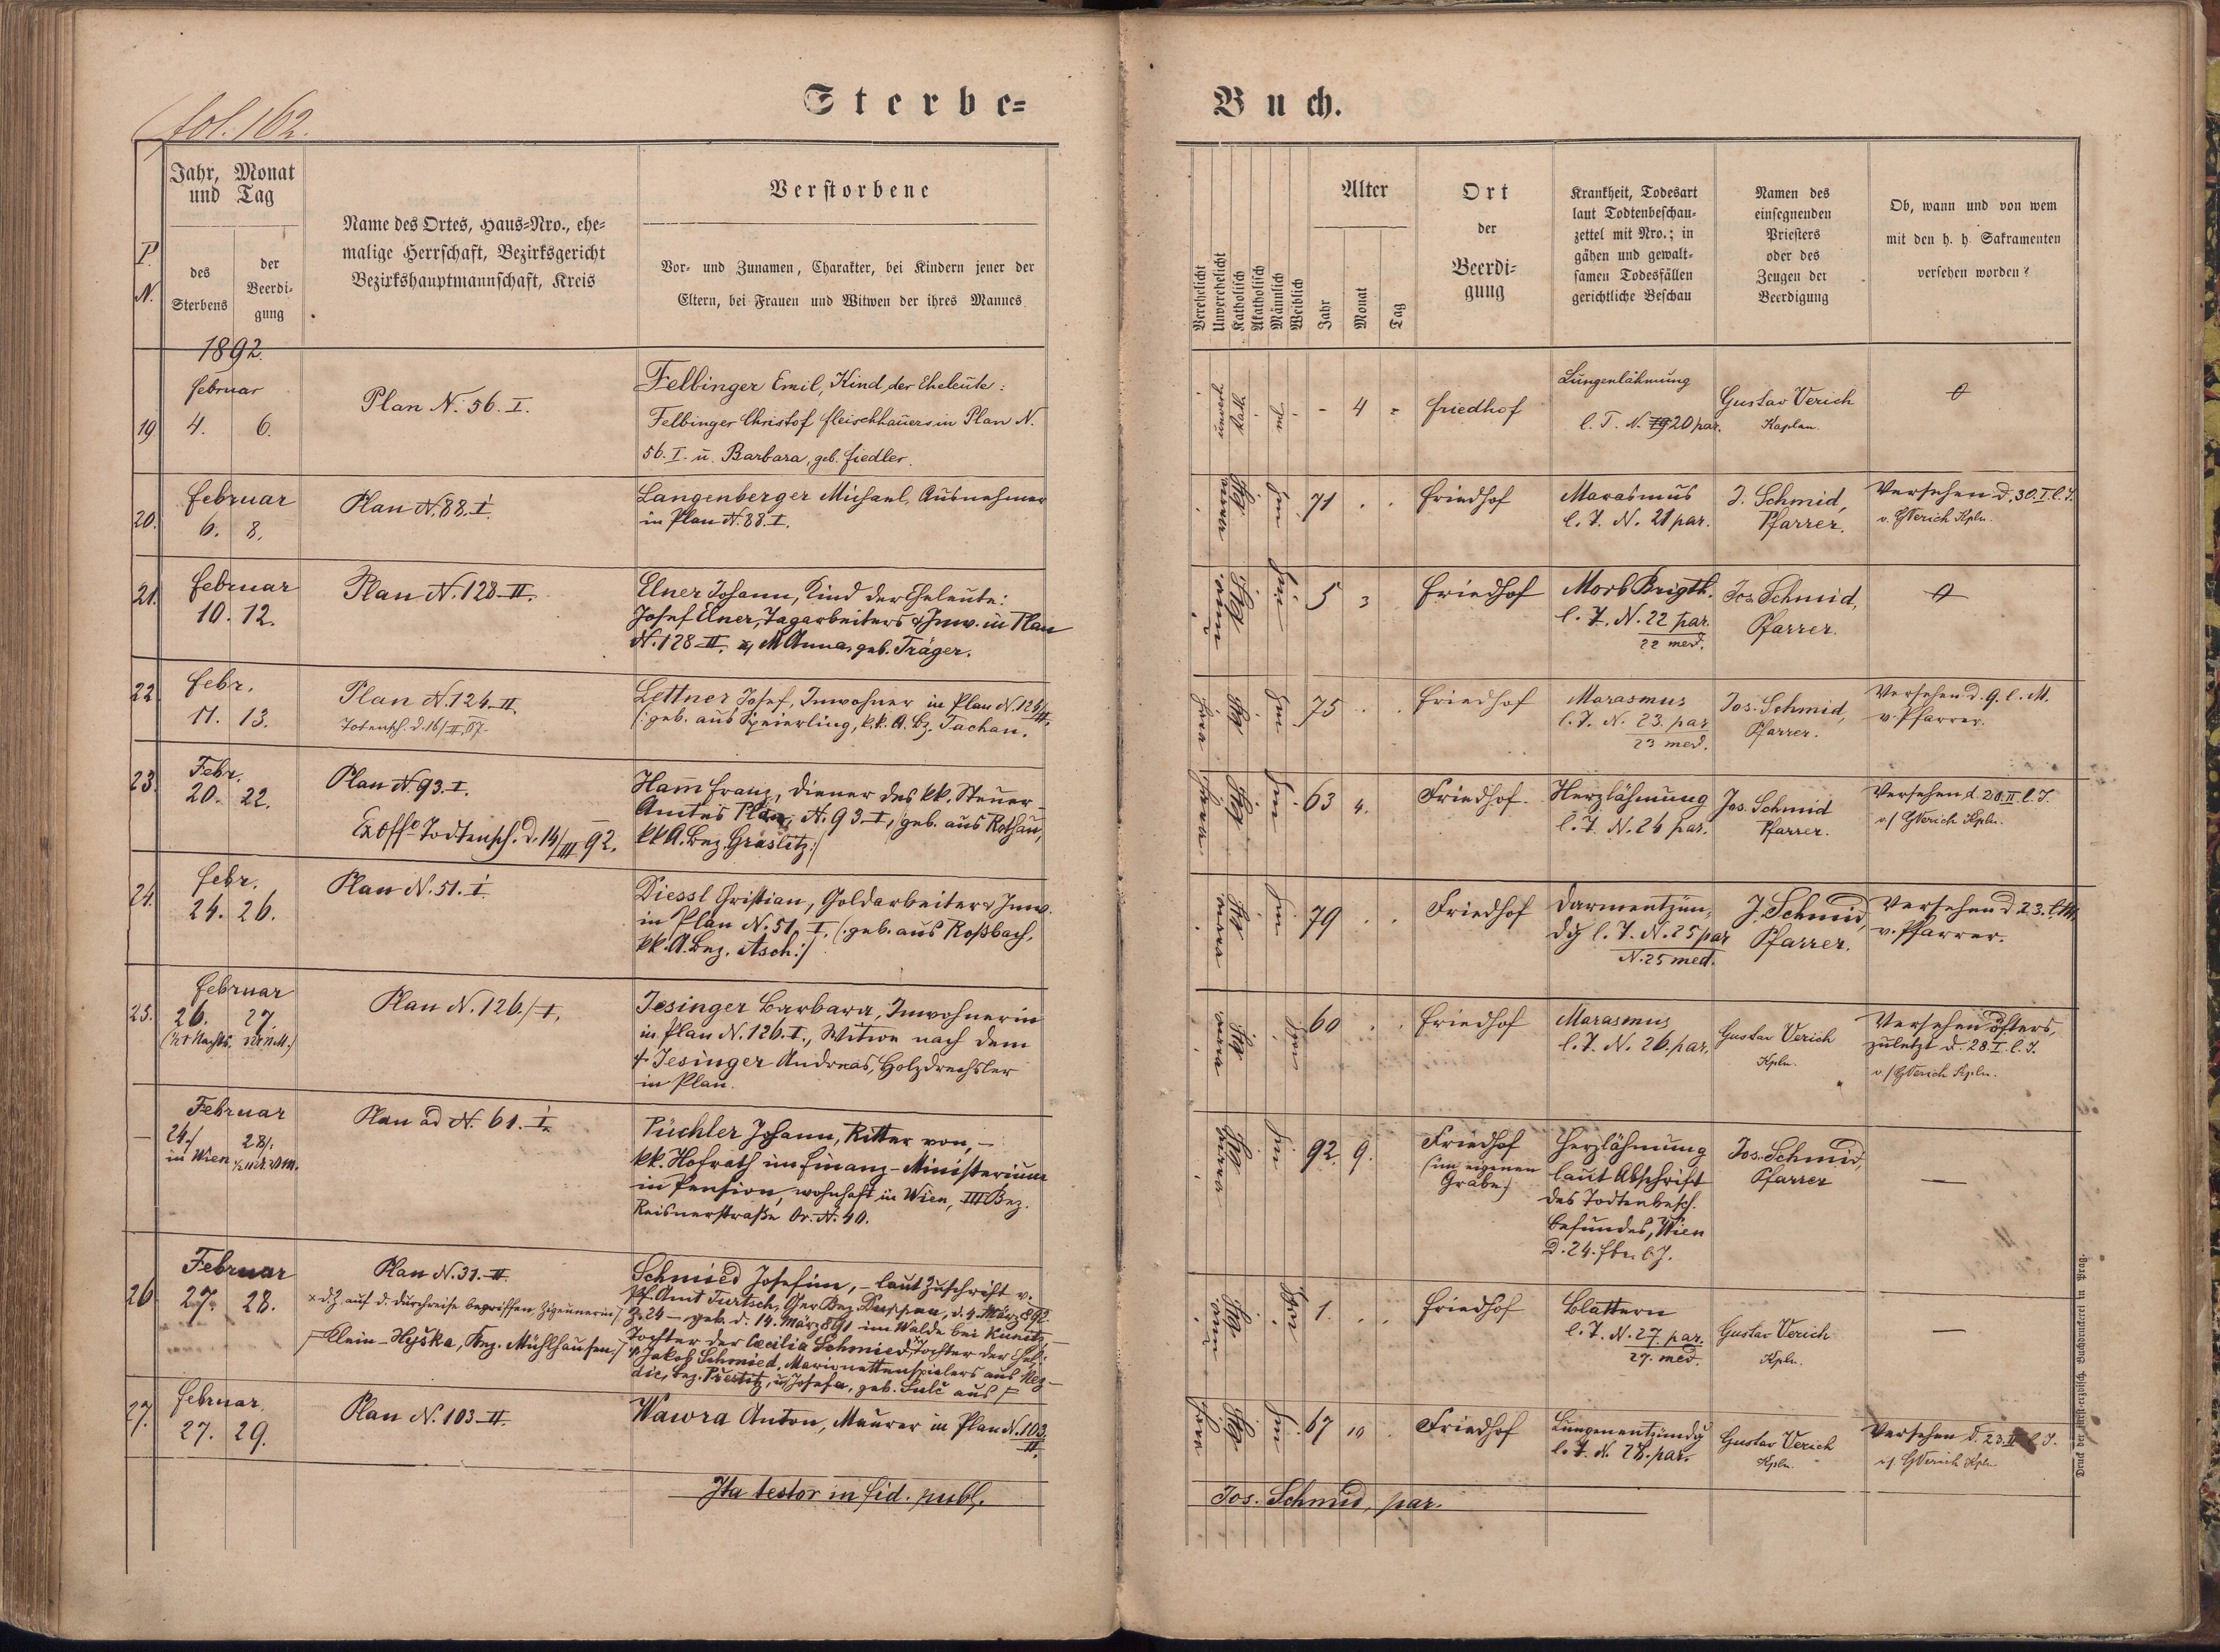 fol. 162.
Sterbe-
Buch.
P. N.
Jahr, Monat
und Tag
des
Sterbens
der
Beerdi-
gung
Name des Ortes, Haus-Nro., ehe-
malige Herrschaft, Bezirksgericht
Bezirkshauptmannschaft, Kreis
Verstorbene
Vor- und Zunamen, Charakter, bei Kindern jener der
Eltern, bei Frauen und Witwen der ihres Mannes
Verehelicht
Unverehelicht
Katholisch
Akatholisch
Männlich
Weiblich
Alter
Jahr
Monat
Tag
Ort
der
Beerdi-
gung
Krankheit, Todesart
laut Todtenbeschau-
zettel mit Nro.; in
gähen und gewalt-
samen Todesfällen
gerichtliche Beschau
Namen des
einsegnenden
Priesters
oder des
Zeugen der
Beerdigung
Ob, wann und von wem
mit den h. h. Sakramenten
versehen worden?
1892.
19
Februar
4. 6.
Plan N. 56. I.
Felbinger Emil, Kind der Eheleute:
Felbinger Christof Fleischhauers in Plan N.
56. I. u. Barbara, geb. Fiedler.
- 4 -
Friedhof
Lungenlähmung
l. T. N. 20 par.
Gustav Verich
Kaplan.
20.
Februar
6. 8.
Plan N. 88. I.
Langenberger Michael, Ausnehmer
in Plan N. 88. I.
71 . .
Friedhof
Marasmus
l. T. N. 21 par.
J. Schmid,
Pfarrer.
Versehen d. 30. I. l. J.
v. GVerich Kpln.
21.
Februar
10. 12.
Plan N. 128-II.
Elner Johann, Kind der Eheleute:
Josef Elner, Tagarbeiters & Inw. in Plan
N. 128-II. & M Anna, geb. Träger.
5 3
Friedhof
Morb. Brigth.
l. T. N. 22 par.
22 med.
Jos. Schmid,
Pfarrer.
22
Febr.
11. 13.
Plan N. 124-II.
Totensch. d. 16/II.
Lettner Josef, Inwohner in Plan N. 124/II.
(: geb. aus Speierling, k.k. A. Bz. Tachau.
75 . .
Friedhof
Marasmus
l. T. N. 23. par
23 med.
Jos. Schmid,
Pfarrer.
Versehen d. 9. l. M.
v. Pfarrer.
23.
Febr.
20. 22.
Plan N. 93. I.
Ex offo Todtensch. d. 14/III 92.
Ham̄ Franz, Diener des kk. Steuer-
Amtes Plan, N. 93-I, geb. aus Rothau,
kk A. Bez. Graslitz:/
63 4.
Friedhof.
Herzlähmung
l. T. N. 24 par.
Jos. Schmid
Pfarrer.
Versehen d. 20. II. l. J.
v./ GVerich Kpln.
24.
Febr.
24. 26.
Plan N. 51. I.
Diessl Christian, Goldarbeiter & Inw.
in Plan N. 51, I. (: geb. aus Roßbach,
kk. A. Bez. Asch:/
79 . .
Friedhof
Darmentzün-
dg l. T. N. 25 par
N. 25 med.
J. Schmid,
Pfarrer.
Versehen d 23. l. M.
v. Pfarrer.
25.
Februar
26. 27
Plan N. 126./I.
Jesinger Barbara, Inwohnerin
in Plan N. 126. I., Witwe nach dem
† Jesinger Andreas, Holzdrechsler
in Plan.
60 . .
Friedhof
Marasmus
l. T. N. 26. par.
Gustav Verich
Kpln.
Versehen öfters,
zuletzt d. 28. I. l. J.
v./ GVerich Kpln.
—
Februar
24./ 28/.
in Wien
Plan ad N. 61. I.
Püchler Johann, Ritter von, -
kk. Hofrath im Finanz-Ministerium
in Pension, wohnhaft in Wien, III. Bez.
Reisnerstraße Or. N. 40.
92. 9.
Friedhof
(im eigenen
Grabe)
Herzlähmung
laut Abschrift
des Todtenbesch.
Befundes, Wien
d. 24. Feb. l. J.
Jos. Schmid,
Pfarrer
—
26
Februar
27. 28.
Plan N. 31. II.
× d. Z. auf d. Durchreise begriffen Zigeunerin/
Klein-Hyška, Bez. Mühlhausen/
Schmied Josefine, - laut Zuschrift v.
Pf. Amt Turtsch, Ger. Bez. Duppau, d. 4. März 892
Z. 24 - geb. d. 14. März 891 im Walde bei
Tochter der Cäcilia Schmied, Tochter der Ehel:
Jakob Schmied, Marionettenspielers aus Nez-
dic, Bez. Přestitz, u. Josefa, geb. Šulc aus
1. . .
Friedhof
Blattern
l. T. N. 27. par.
27. med.
Gustav Verich
Kpln.
—
27.
Februar.
27. 29.
Plan N. 103-II.
Wawra Anton, Maurer in Plan N. 103.
II.
67 10 .
Friedhof
Lungenentzündg
l. T. N. 28. par.
Gustav Verich
Kpln.
Versehen d. 23. II. l. J.
v/. GVerich Kpln
Ita testor in fid. publ.
Jos. Schmid, par.
Druck der fürst-erzbisch. Buchdruckerei in Prag.